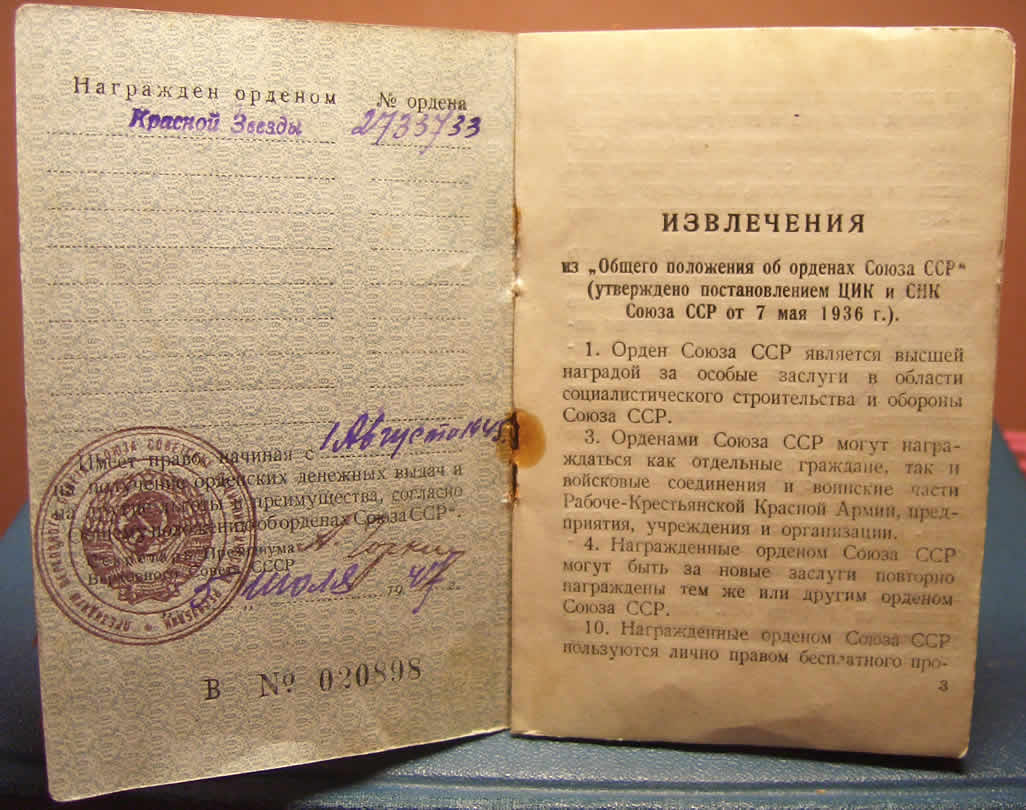 Награжден орденом № ордена
Красной Звезды 2733733
1 Августа 1945
Имеет право, начиная с
получение орденских денежных выдач и
на другие льготы и преимущества, согласно
„Общему положению об орденах Союза ССР“.
Секретарь Президиума А Горкин
Верховного Совета СССР
5 июля 1947 г.
В № 020898
ИЗВЛЕЧЕНИЯ
из „Общего положения об орденах Союза ССР“
(утверждено постановлением ЦИК и СНК
Союза ССР от 7 мая 1936 г.).
1. Орден Союза ССР является высшей
наградой за особые заслуги в области
социалистического строительства и обороны
Союза ССР.
3. Орденами Союза ССР могут награ-
ждаться как отдельные граждане, так и
войсковые соединения и воинские части
Рабоче-Крестьянской Красной Армии, пред-
приятия, учреждения и организации.
4. Награжденные орденом Союза ССР
могут быть за новые заслуги повторно
награждены тем же или другим орденом
Союза ССР.
10. Награжденные орденом Союза ССР
пользуются лично правом бесплатного про-
3